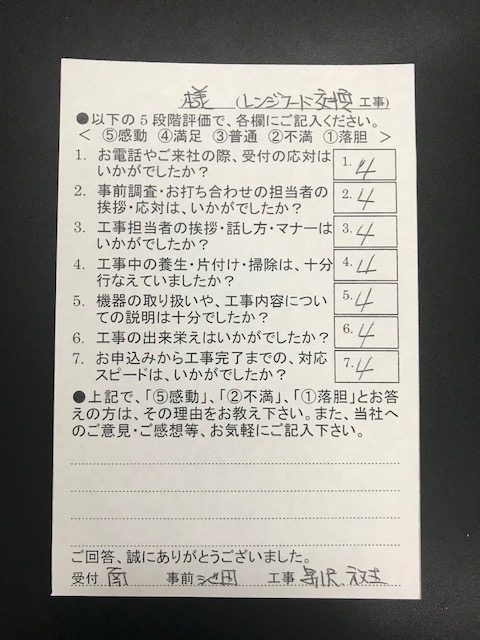 様 (レンジフード交換 工事)
●以下の5段階評価で、各欄にご記入ください。
< ⑤感動 ④満足 ③普通 ②不満 ①落胆 >
1. お電話やご来社の際、受付の応対は
いかがでしたか?
1. 4
2. 事前調査・お打ち合わせの担当者の
挨拶・応対は、いかがでしたか?
2. 4
3. 工事担当者の挨拶・話し方・マナーは
いかがでしたか?
3. 4
4. 工事中の養生・片付け・掃除は、十分
行なえていましたか?
4. 4
5. 機器の取り扱いや、工事内容につい
ての説明は十分でしたか?
5. 4
6. 工事の出来栄えはいかがでしたか?
6. 4
7. お申込みから工事完了までの、対応
スピードは、いかがでしたか?
7. 4
●上記で、「⑤感動」、「②不満」、「①落胆」とお答
えの方は、その理由をお教え下さい。また、当社へ
のご意見・ご感想等、お気軽にご記入下さい。
ご回答、誠にありがとうございました。
受付 南 事前 池田 工事